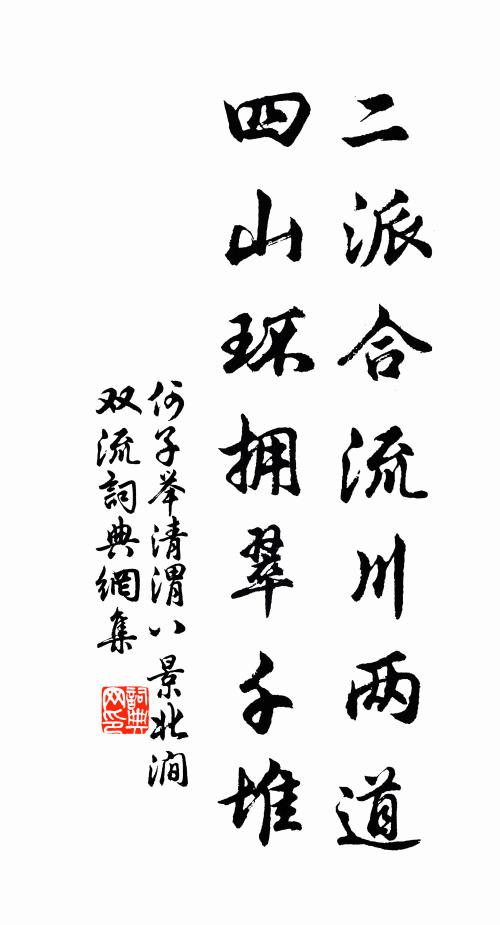 二派合流川两道
四山环拥翠千堆
何子举清渭八景北涧
双流詞典網集
詞典网印